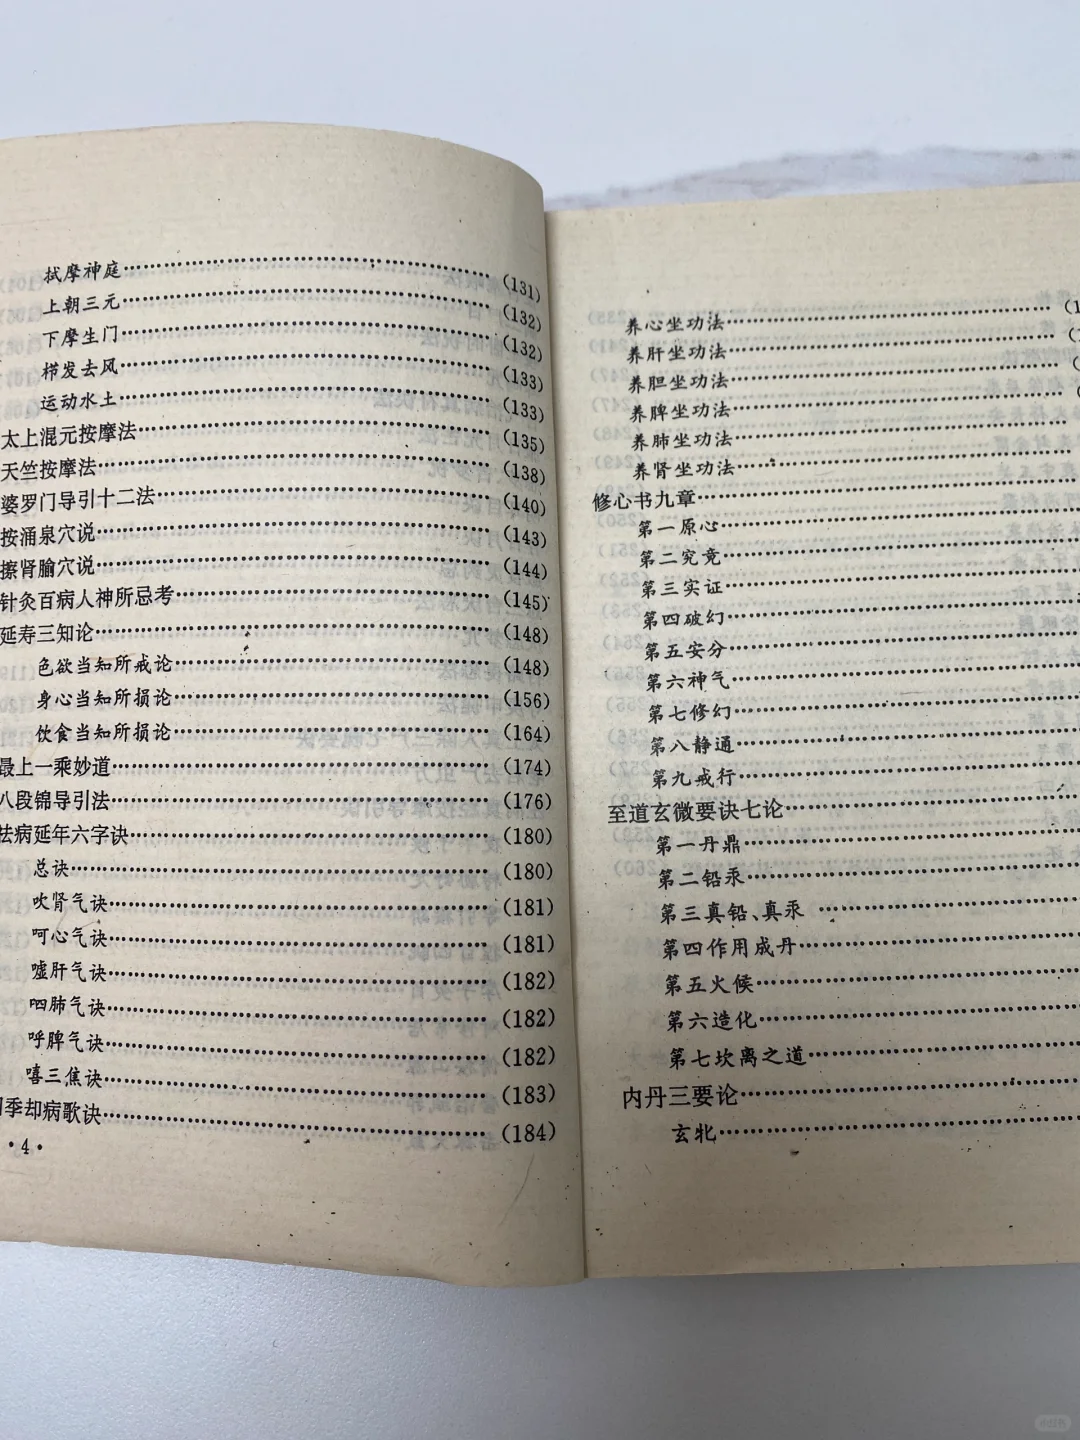 拭摩神庭……(131)
上朝三元……(132)
下摩生门……(132)
栉发去风……(133)
运动水土……(133)
太上混元按摩法……(135)
天竺按摩法……(138)
婆罗门导引十二法……(140)
按涌泉穴说……(143)
擦肾腧穴说……(144)
针灸百病人神所忌考……(145)
延寿三知论……(148)
色欲当知所戒论……(148)
身心当知所损论……(156)
饮食当知所损论……(164)
最上一乘妙道……(174)
八段锦导引法……(176)
祛病延年六字诀……(180)
总诀……(180)
吹肾气诀……(181)
呵心气诀……(181)
嘘肝气诀……(182)
呬肺气诀……(182)
呼脾气诀……(182)
嘻三焦诀……(183)
季却病歌诀……(184)
·4·
养心坐功法……
养肝坐功法……
养胆坐功法……
养脾坐功法……
养肺坐功法……
养肾坐功法……
修心书九章……
第一原心……
第二究竟……
第三实证……
第四破幻……
第五安分……
第六神气……
第七修幻……
第八静通……
第九戒行……
至道玄微要诀七论……
第一丹鼎……
第二铅汞……
第三真铅、真汞……
第四作用成丹……
第五火候……
第六造化……
第七坎离之道……
内丹三要论……
玄牝……